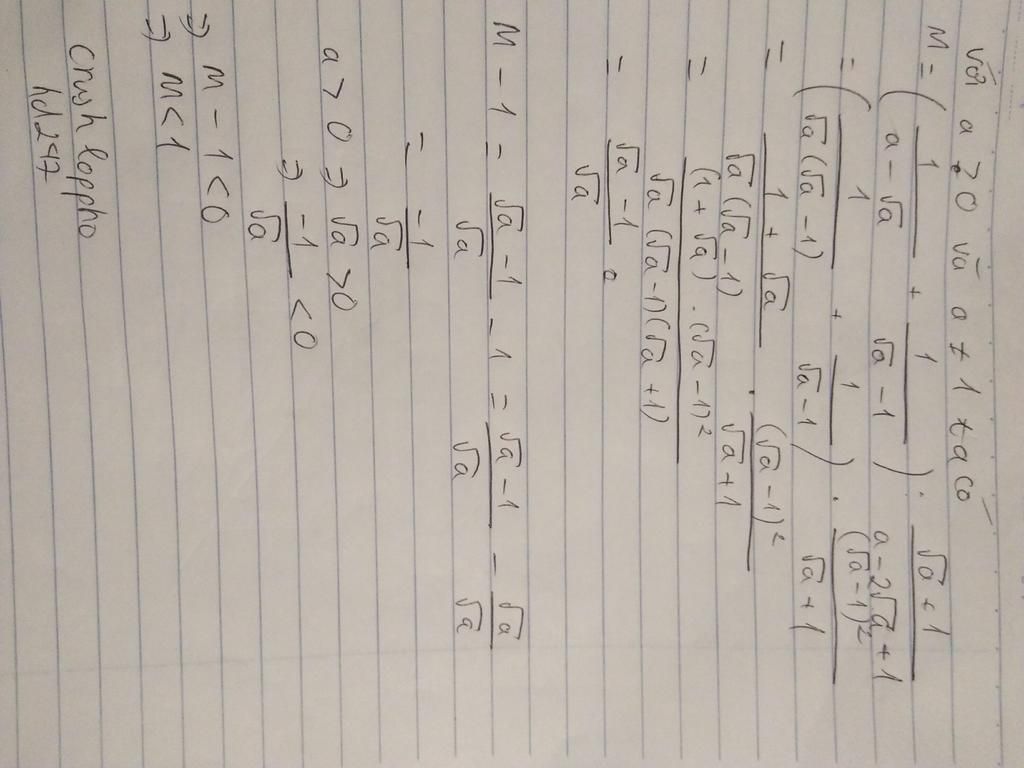 Với a > 0 và a ≠ 1 ta có
M = ( 1/(a - √a) + 1/(√a - 1) ) . (√a + 1)/(a - 2√a + 1)
= ( 1/(√a(√a - 1)) + 1/(√a - 1) ) . (√a - 1)²/(√a + 1)
= (1 + √a)/(√a(√a - 1)) . (√a - 1)²/(√a + 1)
= ((1 + √a) . (√a - 1)²)/(√a(√a - 1)(√a + 1))
= (√a - 1)/√a .
M - 1 = (√a - 1)/√a - 1 = (√a - 1)/√a - √a/√a
= -1/√a
a > 0 => √a > 0
=> -1/√a < 0
=> M - 1 < 0
=> M < 1
Crush loppho
hd247